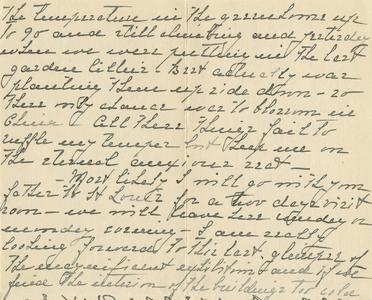 the temperature in the greenhouse up
to 90 and still climbing and yesterday
when we were putting in the last
garden lillies - Bert actually was
planting them upside down - so
their only chance was to blossom in
China. All these things fail to
ruffle my temper but keep me on
the eternal anxious seat
- Most likely I will go with your
father to St Louis for a two days visit
soon - we will leave here Sunday or
Monday evening - I am really
looking forward to this last glimpse of
the magnificent exhibition and if we
find the interior of the buildings too cold